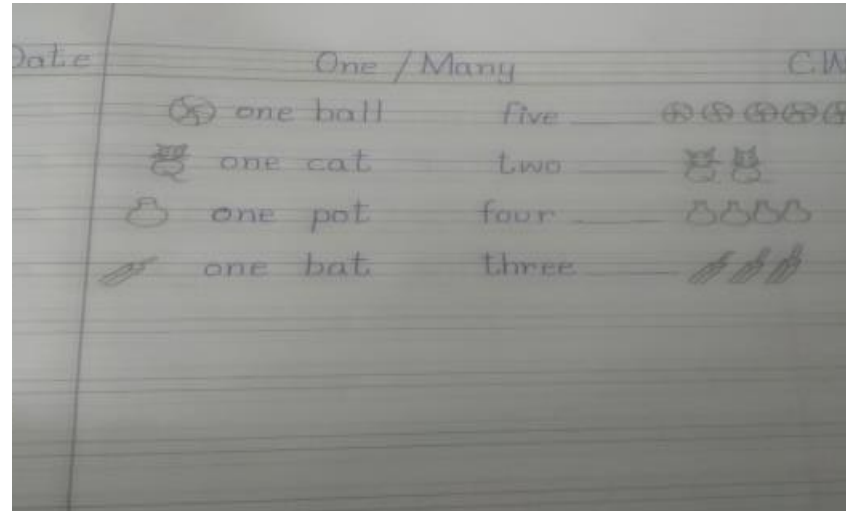 Date One / Many C.W
one ball five ____
one cat two ____
one pot four ____
one bat three ____